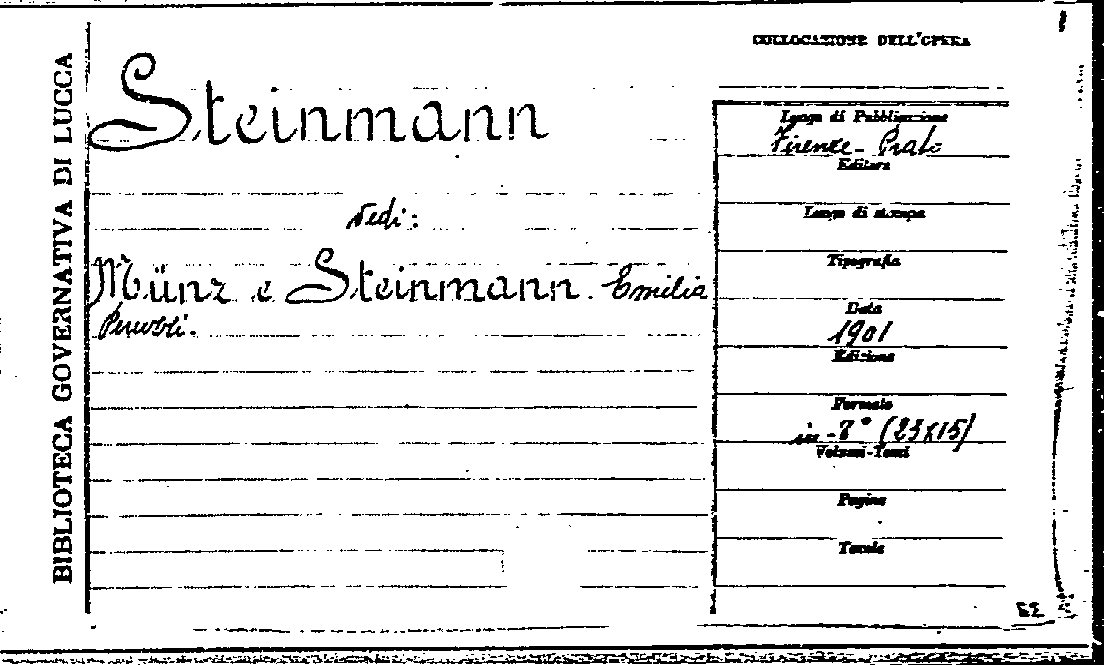 BIBLIOTECA GOVERNATIVA DI LUCCA
Steinmann
Vedi:
Münz e Steinmann. Emilia
COLLOCAZIONE DELL'OPERA
Luogo di Pubblicazione
Firenze - Prato
Editore
Luogo di stampa
Tipografia
Data
1901
Edizione
Formato
in-8° (23x15)
Volumi-Tomi
Pagine
Tavole